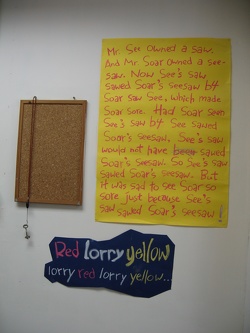 Mr. See owned a saw.
And Mr. Soar owned a see-
saw. Now See's saw
sawed Soar's seesaw by
Soar saw See, which made
Soar sore. Had Soar seen
See's saw by See sawed
Soar's seesaw. See's saw
would not have sawed
Soar's seesaw. So See's saw
sawed Soar's seesaw. But
it was sad to see Soar so
sore just because See's
saw sawed Soar's seesaw!
Red lorry yellow
lorry red lorry yellow..